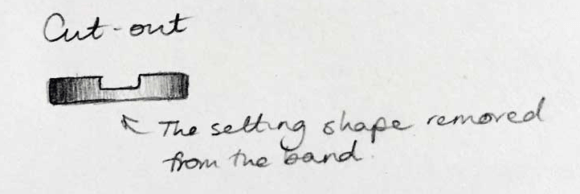 Cut-out
The setting shape removed
from the band.